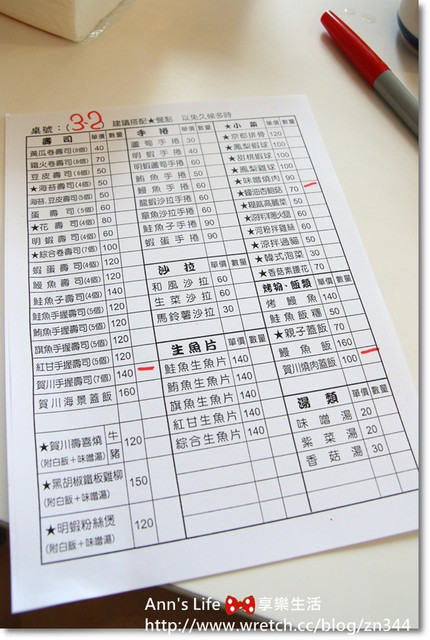 桌號：(3-2 建議搭配★餐點 以免久候多時
壽司 單價 數量
黃瓜卷壽司(6個) 40
鐵火卷壽司(6個) 70
豆皮壽司(5個) 50
★海苔壽司(4個) 50
海苔.豆皮壽司(5個) 50
蛋壽司(5個) 60
★花壽司(4個) 80
明蝦壽司(4個) 60
★綜合卷壽司(7個) 100
蝦蛋壽司(4個) 60
鰻魚壽司(4個) 120
鮭魚子壽司(4個) 140
鮭魚手握壽司(5個) 120
鮪魚手握壽司(5個) 120
旗魚手握壽司(5個) 120
紅甘手握壽司(5個) 120
賀川手握壽司(7個) 140
賀川海景蓋飯 160
★賀川壽喜燒 牛 豬 120
(附白飯+味噌湯)
★黑胡椒鐵板雞柳 150
(附白飯+味噌湯)
★明蝦粉絲煲 120
(附白飯+味噌湯)
手捲 單價 數量
蘆筍手捲 30
明蝦手捲 40
鮪魚手捲 50
鰻魚手捲 60
龍蝦沙拉手捲 60
章魚沙拉手捲 60
鮭魚子手捲 90
蝦蛋手捲 60
沙拉 單價 數量
和風沙拉 60
生菜沙拉 60
馬鈴薯沙拉 30
生魚片 單價 數量
鮭魚生魚片 140
鮪魚生魚片 140
旗魚生魚片 140
紅甘生魚片 140
綜合生魚片 140
★小菜 單價 數量
★京都排骨 120
★鳳梨蝦球
★甜桃蝦球
★鳳梨雞球
★味噌燒肉 90
70
★韓式泡菜 30
★香菇素腰花 70
烤物、飯類 單價 數量
烤鰻魚 140
鮭魚飯糰 50
★親子蓋飯 70
鰻魚飯 160
賀川燒肉蓋飯 100
湯類 單價 數量
味噌湯 20
紫菜湯 20
香菇湯 30
Ann's Life 享樂生活
http://www.wretch.cc/blog/zn344